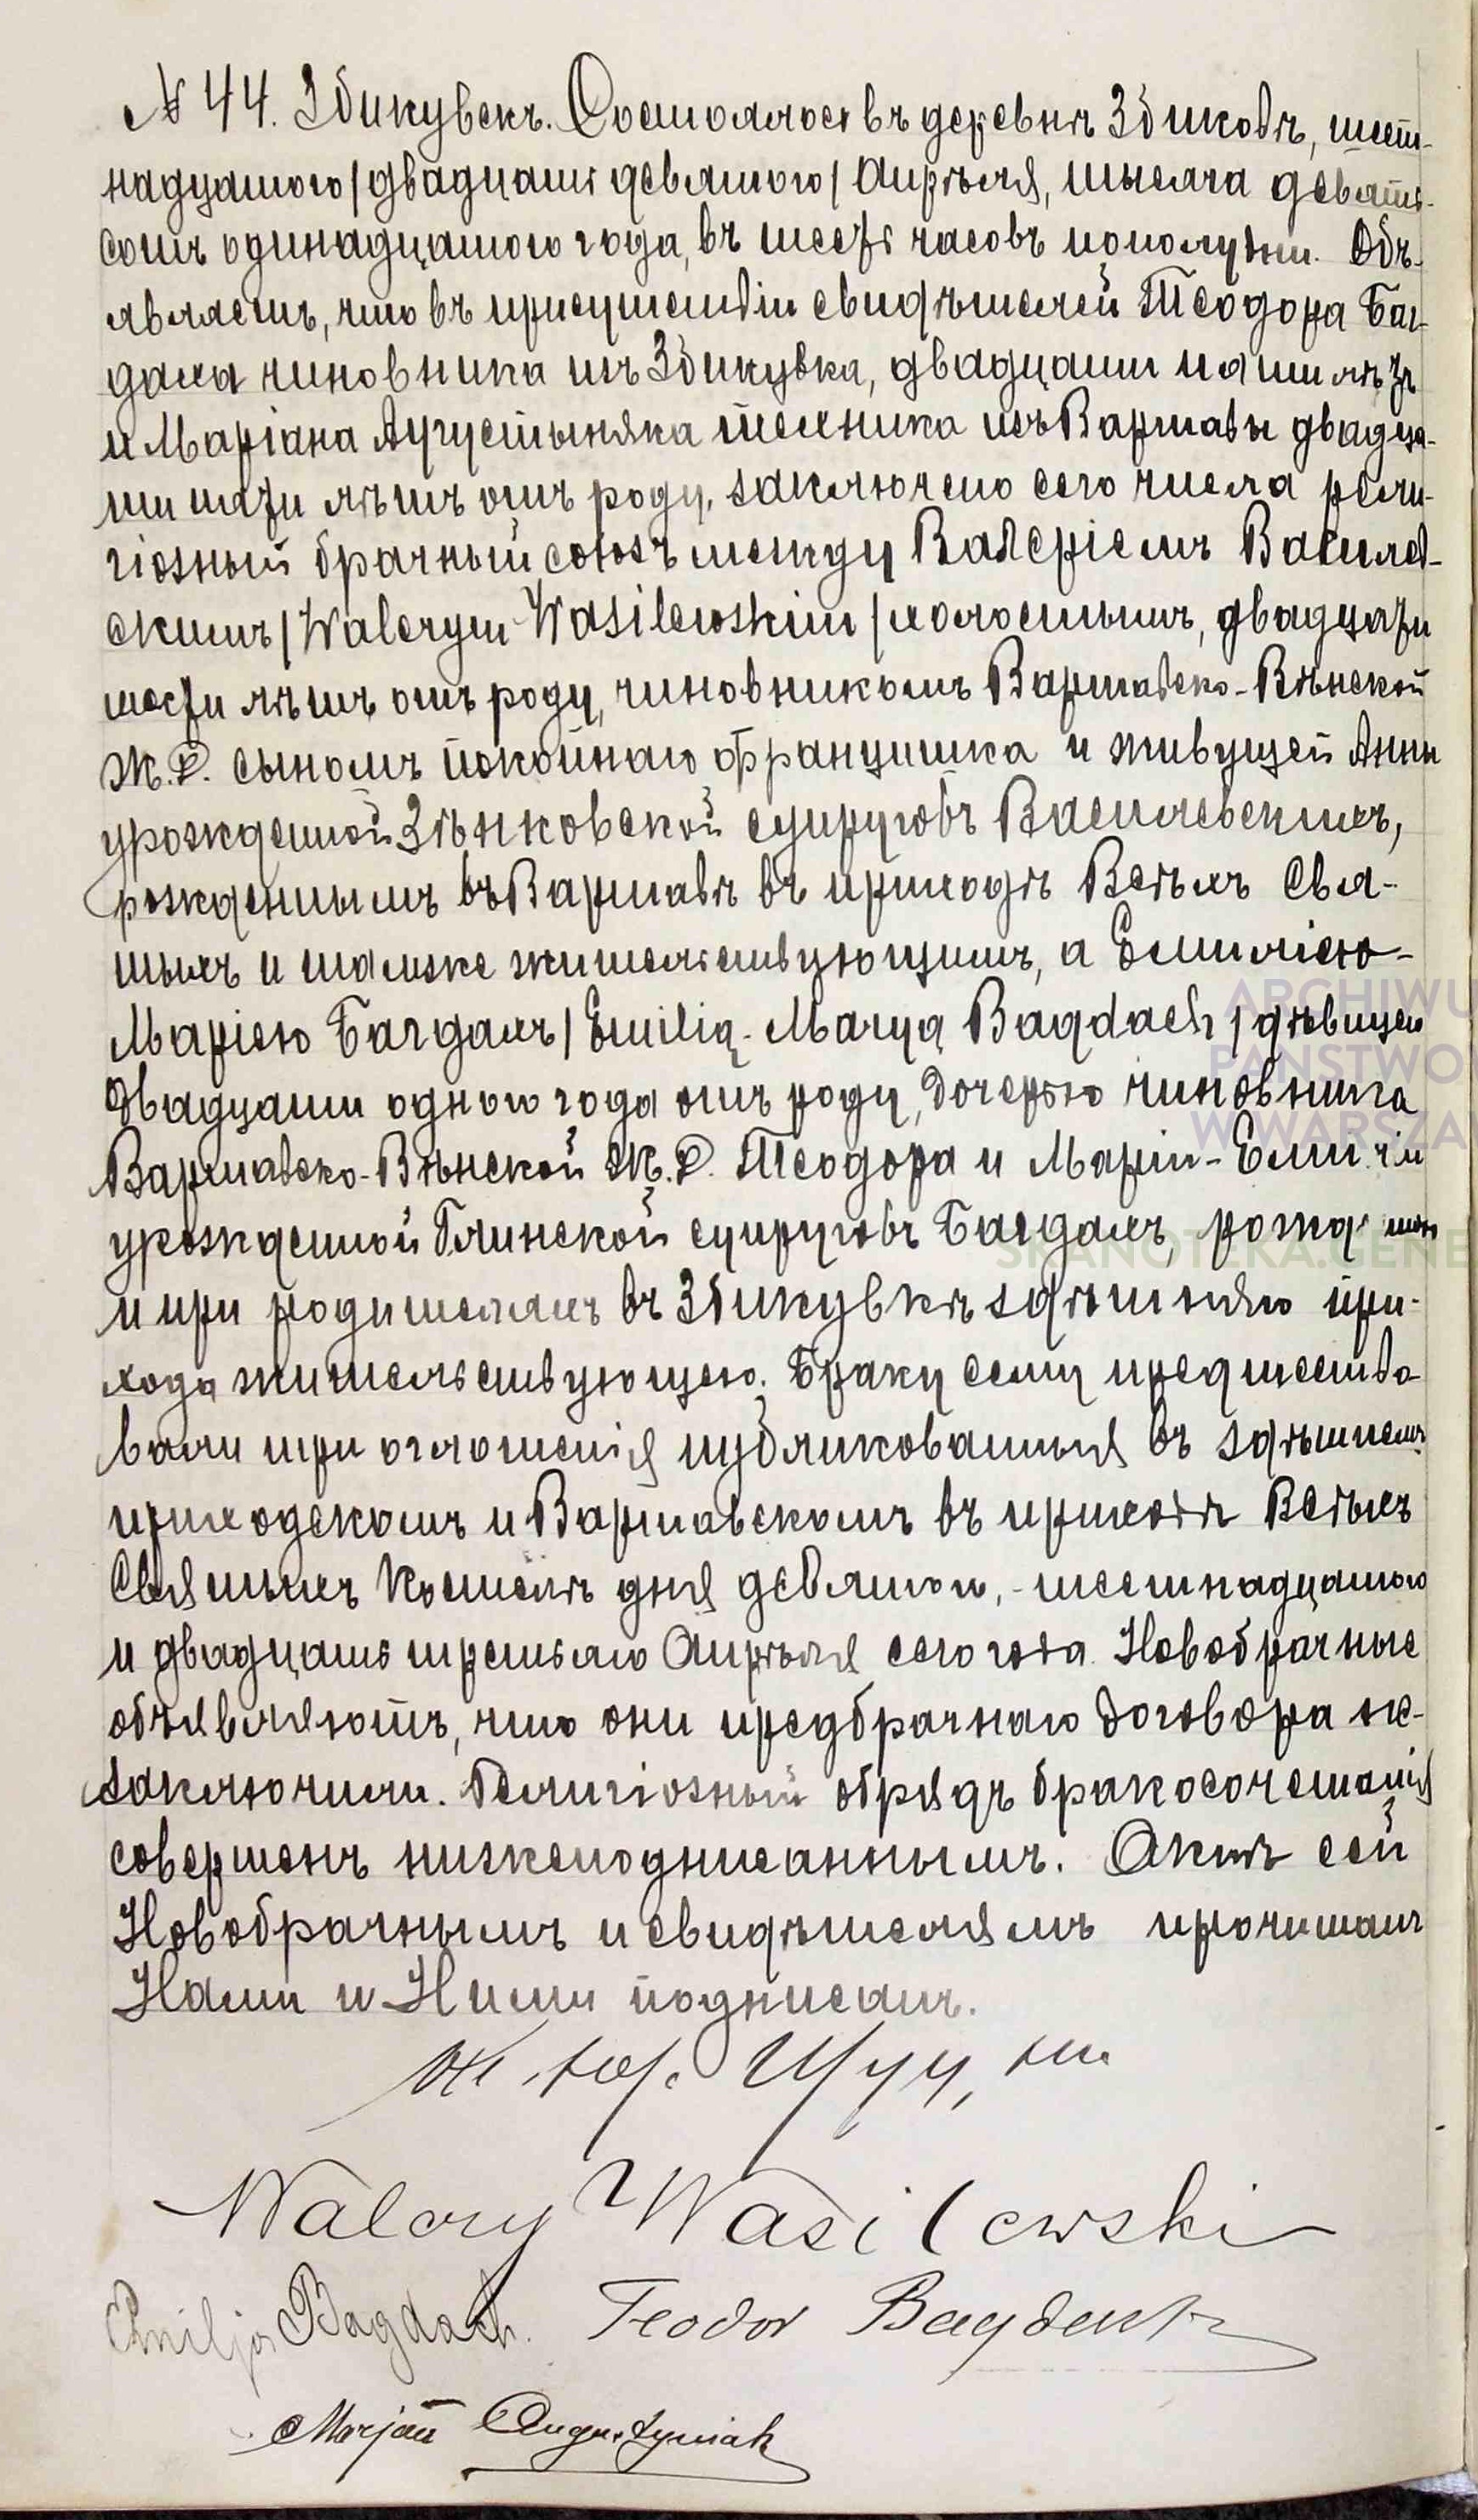 № 44. Збикувекъ. Состоялось въ деревнѣ Збиковѣ, шест-
надцатого / двадцать девятого / Апрѣля, тысяча девять-
сотъ одинадцатого года, въ шесть часовъ пополудни. Объ-
являемъ, что въ присутствіи свидѣтелей Теодора Баг-
даха чиновника изъ Збикувка, двадцати пяти лѣтъ
и Маріана Аугустыняка техника изъ Варшавы двадца-
ти пяти лѣтъ отъ роду, заключено сего числа рели-
гіозный брачный союзъ между Валеріемъ Василев-
скимъ / Walerym Wasilewskim / холостымъ, двадцати
шести лѣтъ отъ роду, чиновникомъ Варшавско-Вѣнской
Ж.Д. сыномъ покойнаго Францишка и живущей Анны
урожденной Зѣнковской супруговъ Василевскихъ,
рожденнымъ въ Варшавѣ въ приходѣ Всѣхъ Свя-
тыхъ и тамже жительствующимъ, а Емиліею-
Маріею Багдахъ / Emilią-Maryą Bagdach / дѣвицею
двадцати одного года отъ роду, дочерью чиновника
Варшавско-Вѣнской Ж.Д. Теодора и Маріи-Емиліи
урожденной Глинской супруговъ Багдахъ, рожденною
и при родителяхъ въ Збикувкѣ здѣшняго при-
хода жительствующею. Браку сему предшество-
вали три оглашенія публикованныя въ здѣшнемъ
приходскомъ и Варшавскомъ въ приходѣ Всѣхъ
Святыхъ Костелѣ дня девятого,- шестнадцатого
и двадцать третьяго Апрѣля сего года. Новобрачные
объявляютъ, что они предбрачнаго договора не-
заключили. Религіозный обрядъ бракосочетанія
совершенъ нижеподписаннымъ. Актъ сей
Новобрачнымъ и свидѣтелямъ прочитанъ
Нами и Ними подписанъ.
Walery Wasilewski
Emilja Bagdach. Teodor Bagdach
Marjan Augustyniak
ARCHIWU
PAŃSTWO
W WARSZA
SKANOTEKA.GENE